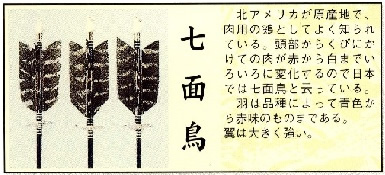 七面鳥
北アメリカが原産地で、
肉用の鶏としてよく知られ
ている。頭部からくびにか
けての肉が赤から白までい
ろいろに変化するので日本
では七面鳥と云っている。
羽は品種によって青色か
ら赤味のものまである。
翼は大きく強い。